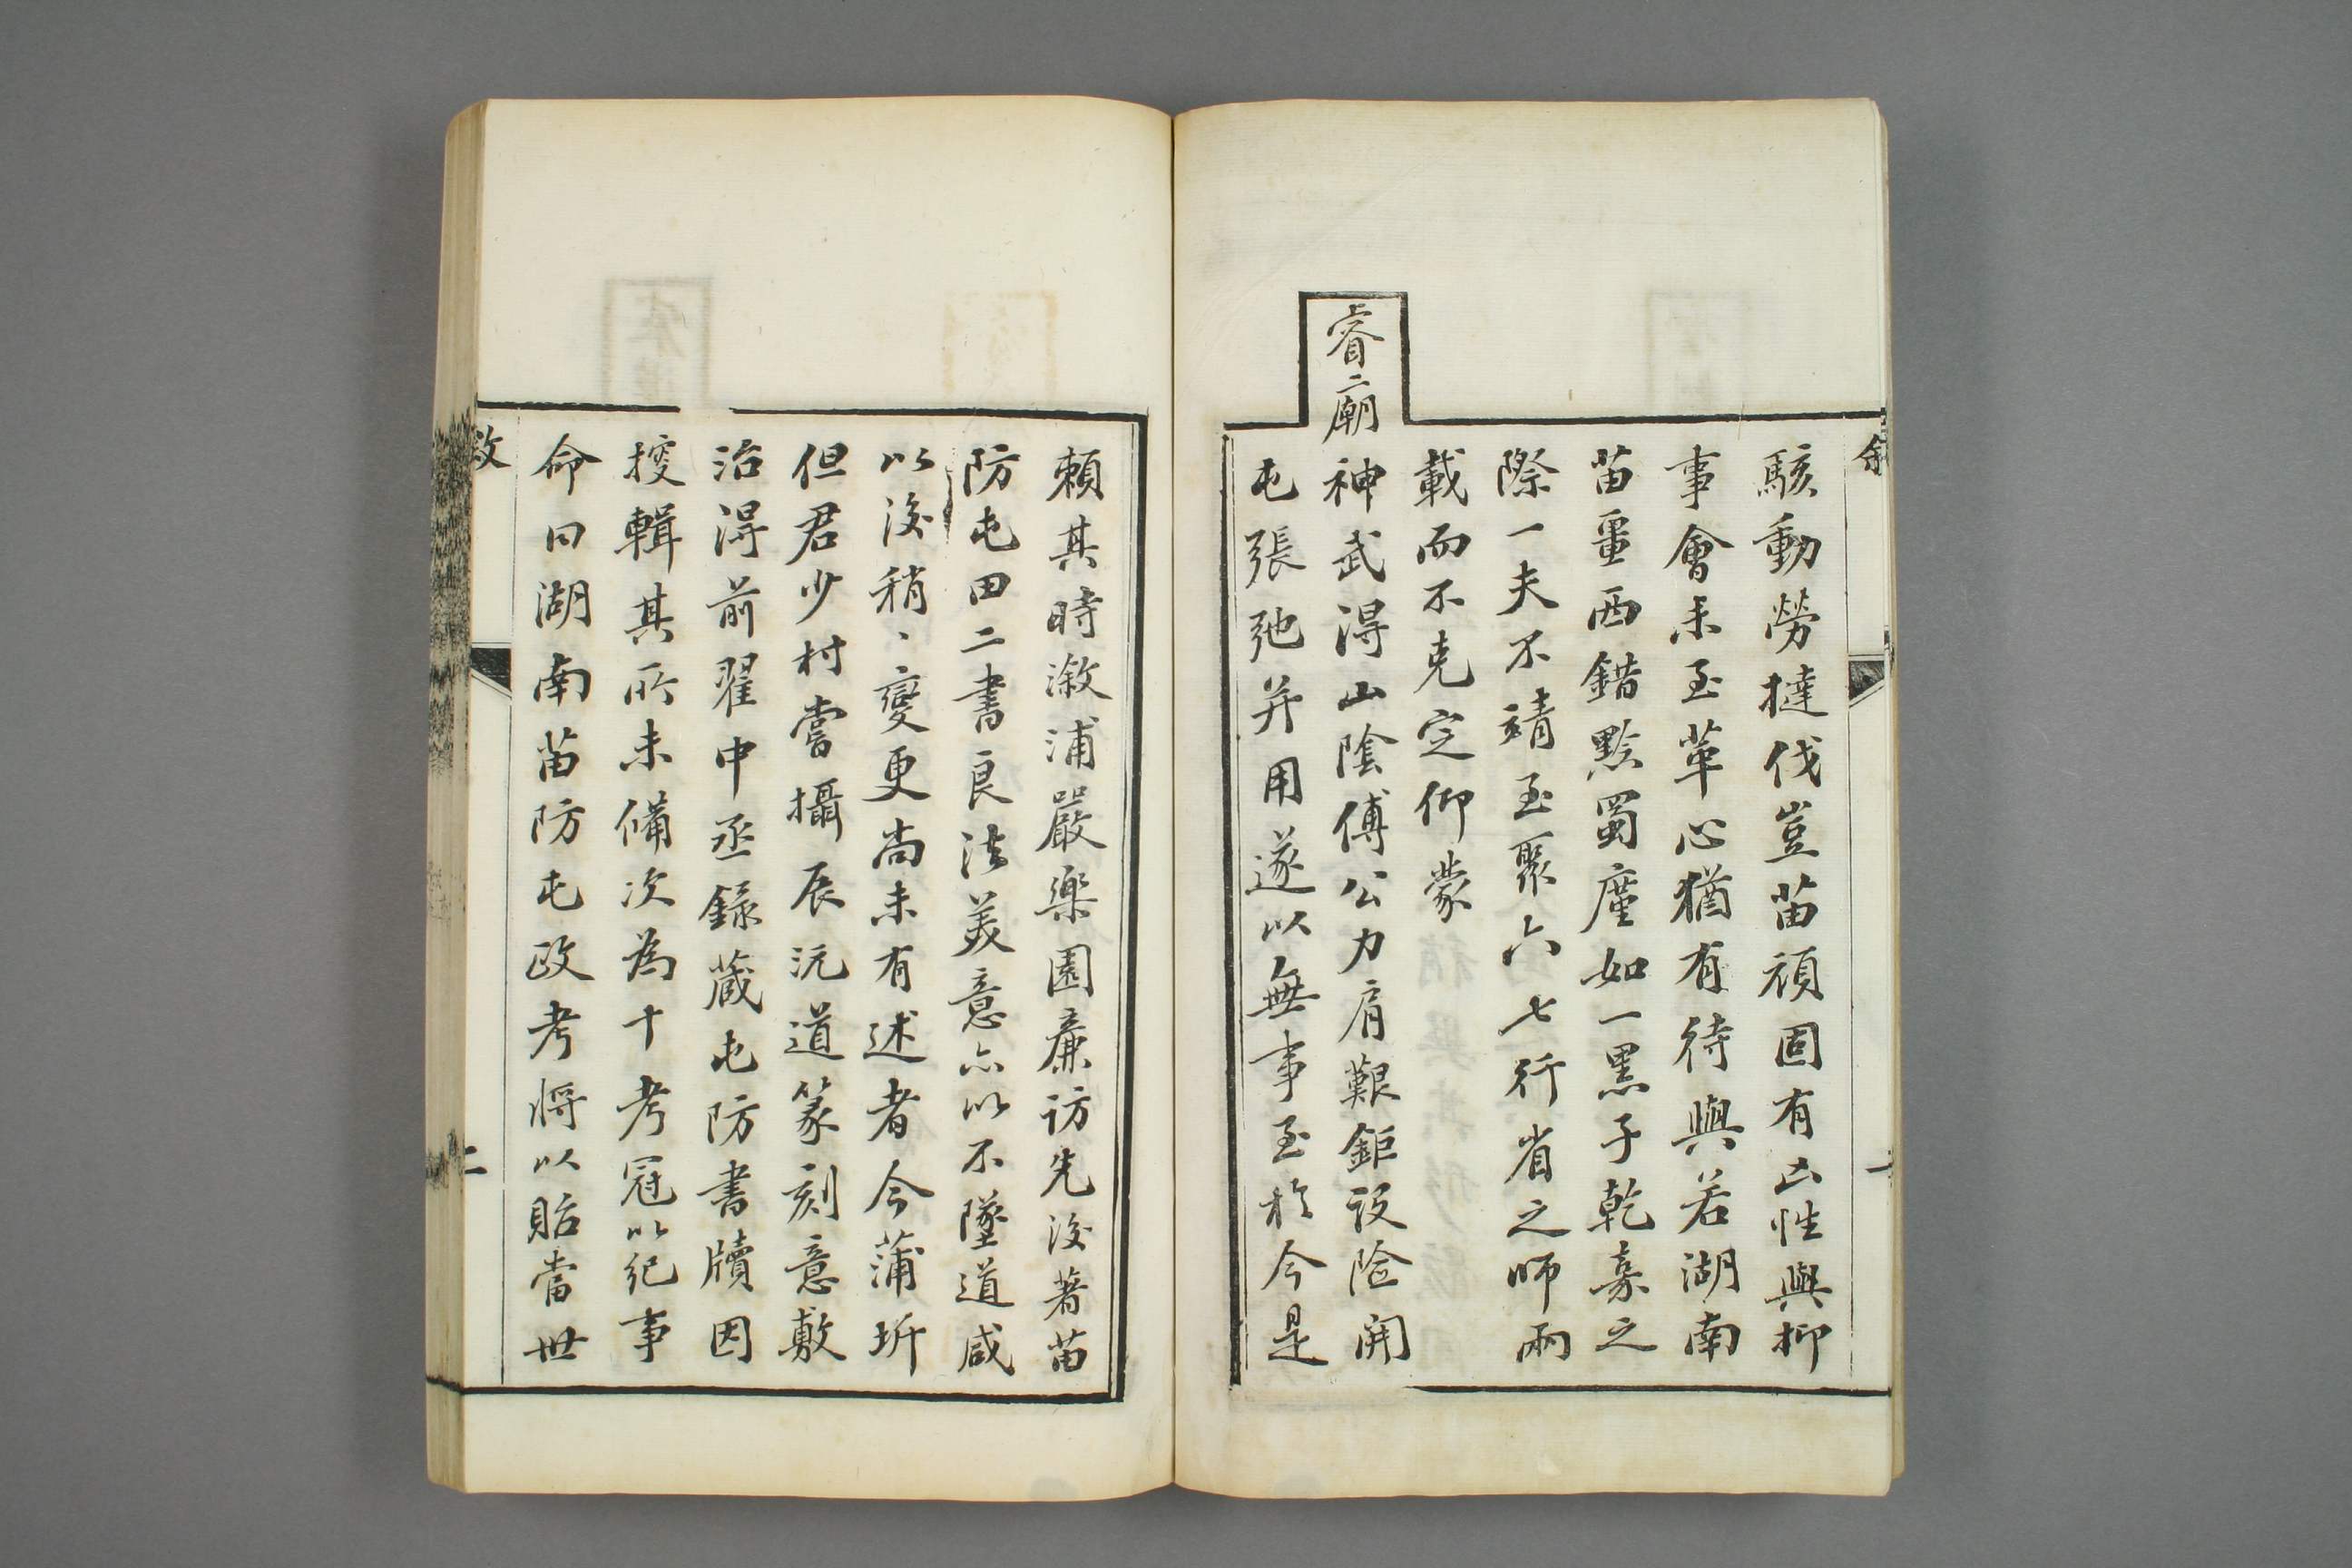 駭動勞撻伐豈苗頑固有凶性與抑
事會未至革心猶有待與若湖南
苗畺西錯黔蜀廑如一黑子乾嘉之
際一夫不靖至聚六七行省之師兩
載而不克定仰蒙
睿廟神武得山陰傅公力肩艱鉅設險開
屯張弛并用遂以無事至於今是
賴其時漵浦嚴樂園廉訪先後著苗
防屯田二書良法美意亦以不墜道咸
以後稍〻變更尚未有述者今蒲圻
但君少村嘗攝辰沅道篆刻意敷
治得前翟中丞錄藏屯防書牘因
搜輯其所未備次為十考冠以紀事
命曰湖南苗防屯政考將以貽當世
二